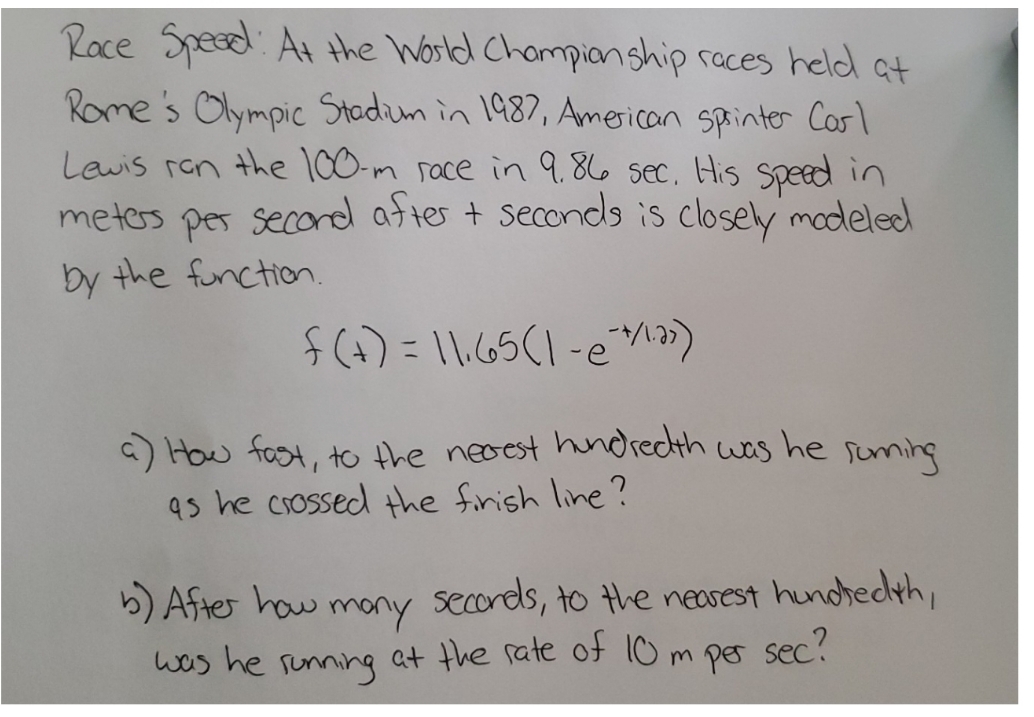 Race Speed: At the World Championship races held at
Rome's Olympic Stadium in 1987, American sprinter Carl
Lewis ran the 100-m race in 9.86 sec. His speed in
meters per second after t seconds is closely modeled
by the function.
f(t) = 11.65(1-e^-t/1.27)
a) How fast, to the nearest hundredth was he running
as he crossed the finish line?
b) After how many seconds, to the nearest hundredth,
was he running at the rate of 10 m per sec?